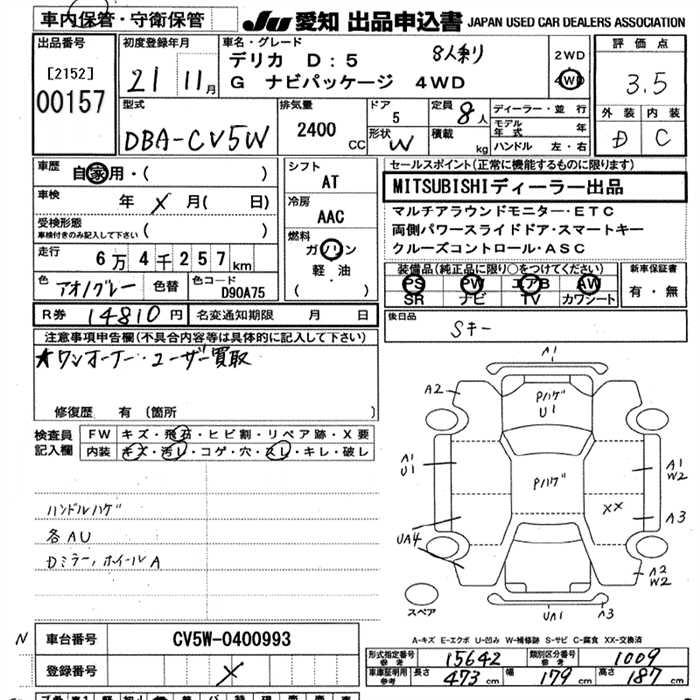 車内保管・守衛保管
JU 愛知 出品申込書 JAPAN USED CAR DEALERS ASSOCIATION
出品番号
[2152]
00157
初度登録年月
21 11月
車名・グレード
デリカ D:5 8人乗り
G ナビパッケージ 4WD
2WD
4WD
評価点
3.5
外装 内装
D C
型式
DBA-CV5W
排気量
2400
CC
ドア
5
形状 W
定員 8人
積載 kg
ディーラー・並行
モデル年式 年
ハンドル 左・右
車歴
自家用・( )
車検 年 X 月( 日)
受検形態
車検付きのみ記入して下さい ( )
走行
6万4千257km
色 アオ/グレー 色替 色コード
D90A75
シフト
AT
冷房
AAC
燃料
ガソリン
軽・油
( )
セールスポイント(正常に機能するものに限ります)
MITSUBISHIディーラー出品
マルチアラウンドモニター・ETC
両側パワースライドドア・スマートキー
クルーズコントロール・ASC
装備品(純正品に限り○をつけてください)
PS PW エアB AW
SR ナビ TV カワシート
新車保証書
有・無
R券 14810円 名変通知期限 月 日
後日品
Sキー
注意事項申告欄(不具合内容等は具体的に記入して下さい)
★ワンオーナー・ユーザー買取
修復歴 有(箇所 )
検査員
記入欄
FW キズ・飛石・ヒビ割・リペア跡・X要
内装 キズ・汚レ・コゲ・穴・スレ・キレ・破レ
ハンドルハゲ
各AU
Dミラー,ホイールA
A1
A2
Pハゲ
U1
A1
U1
Pハゲ
A1
W2
XX
A3
UA4
A2
W2
スペア
UA1
A3
A-キズ E-エクボ U-凹み W-補修跡 S-サビ C-腐食 XX-交換済
N
車台番号 CV5W-0400993
登録番号 X
形式指定番号
参考 15642
類別区分番号
参考 1009
車庫証明用
参考 長さ 473cm 幅 179cm 高さ 187cm